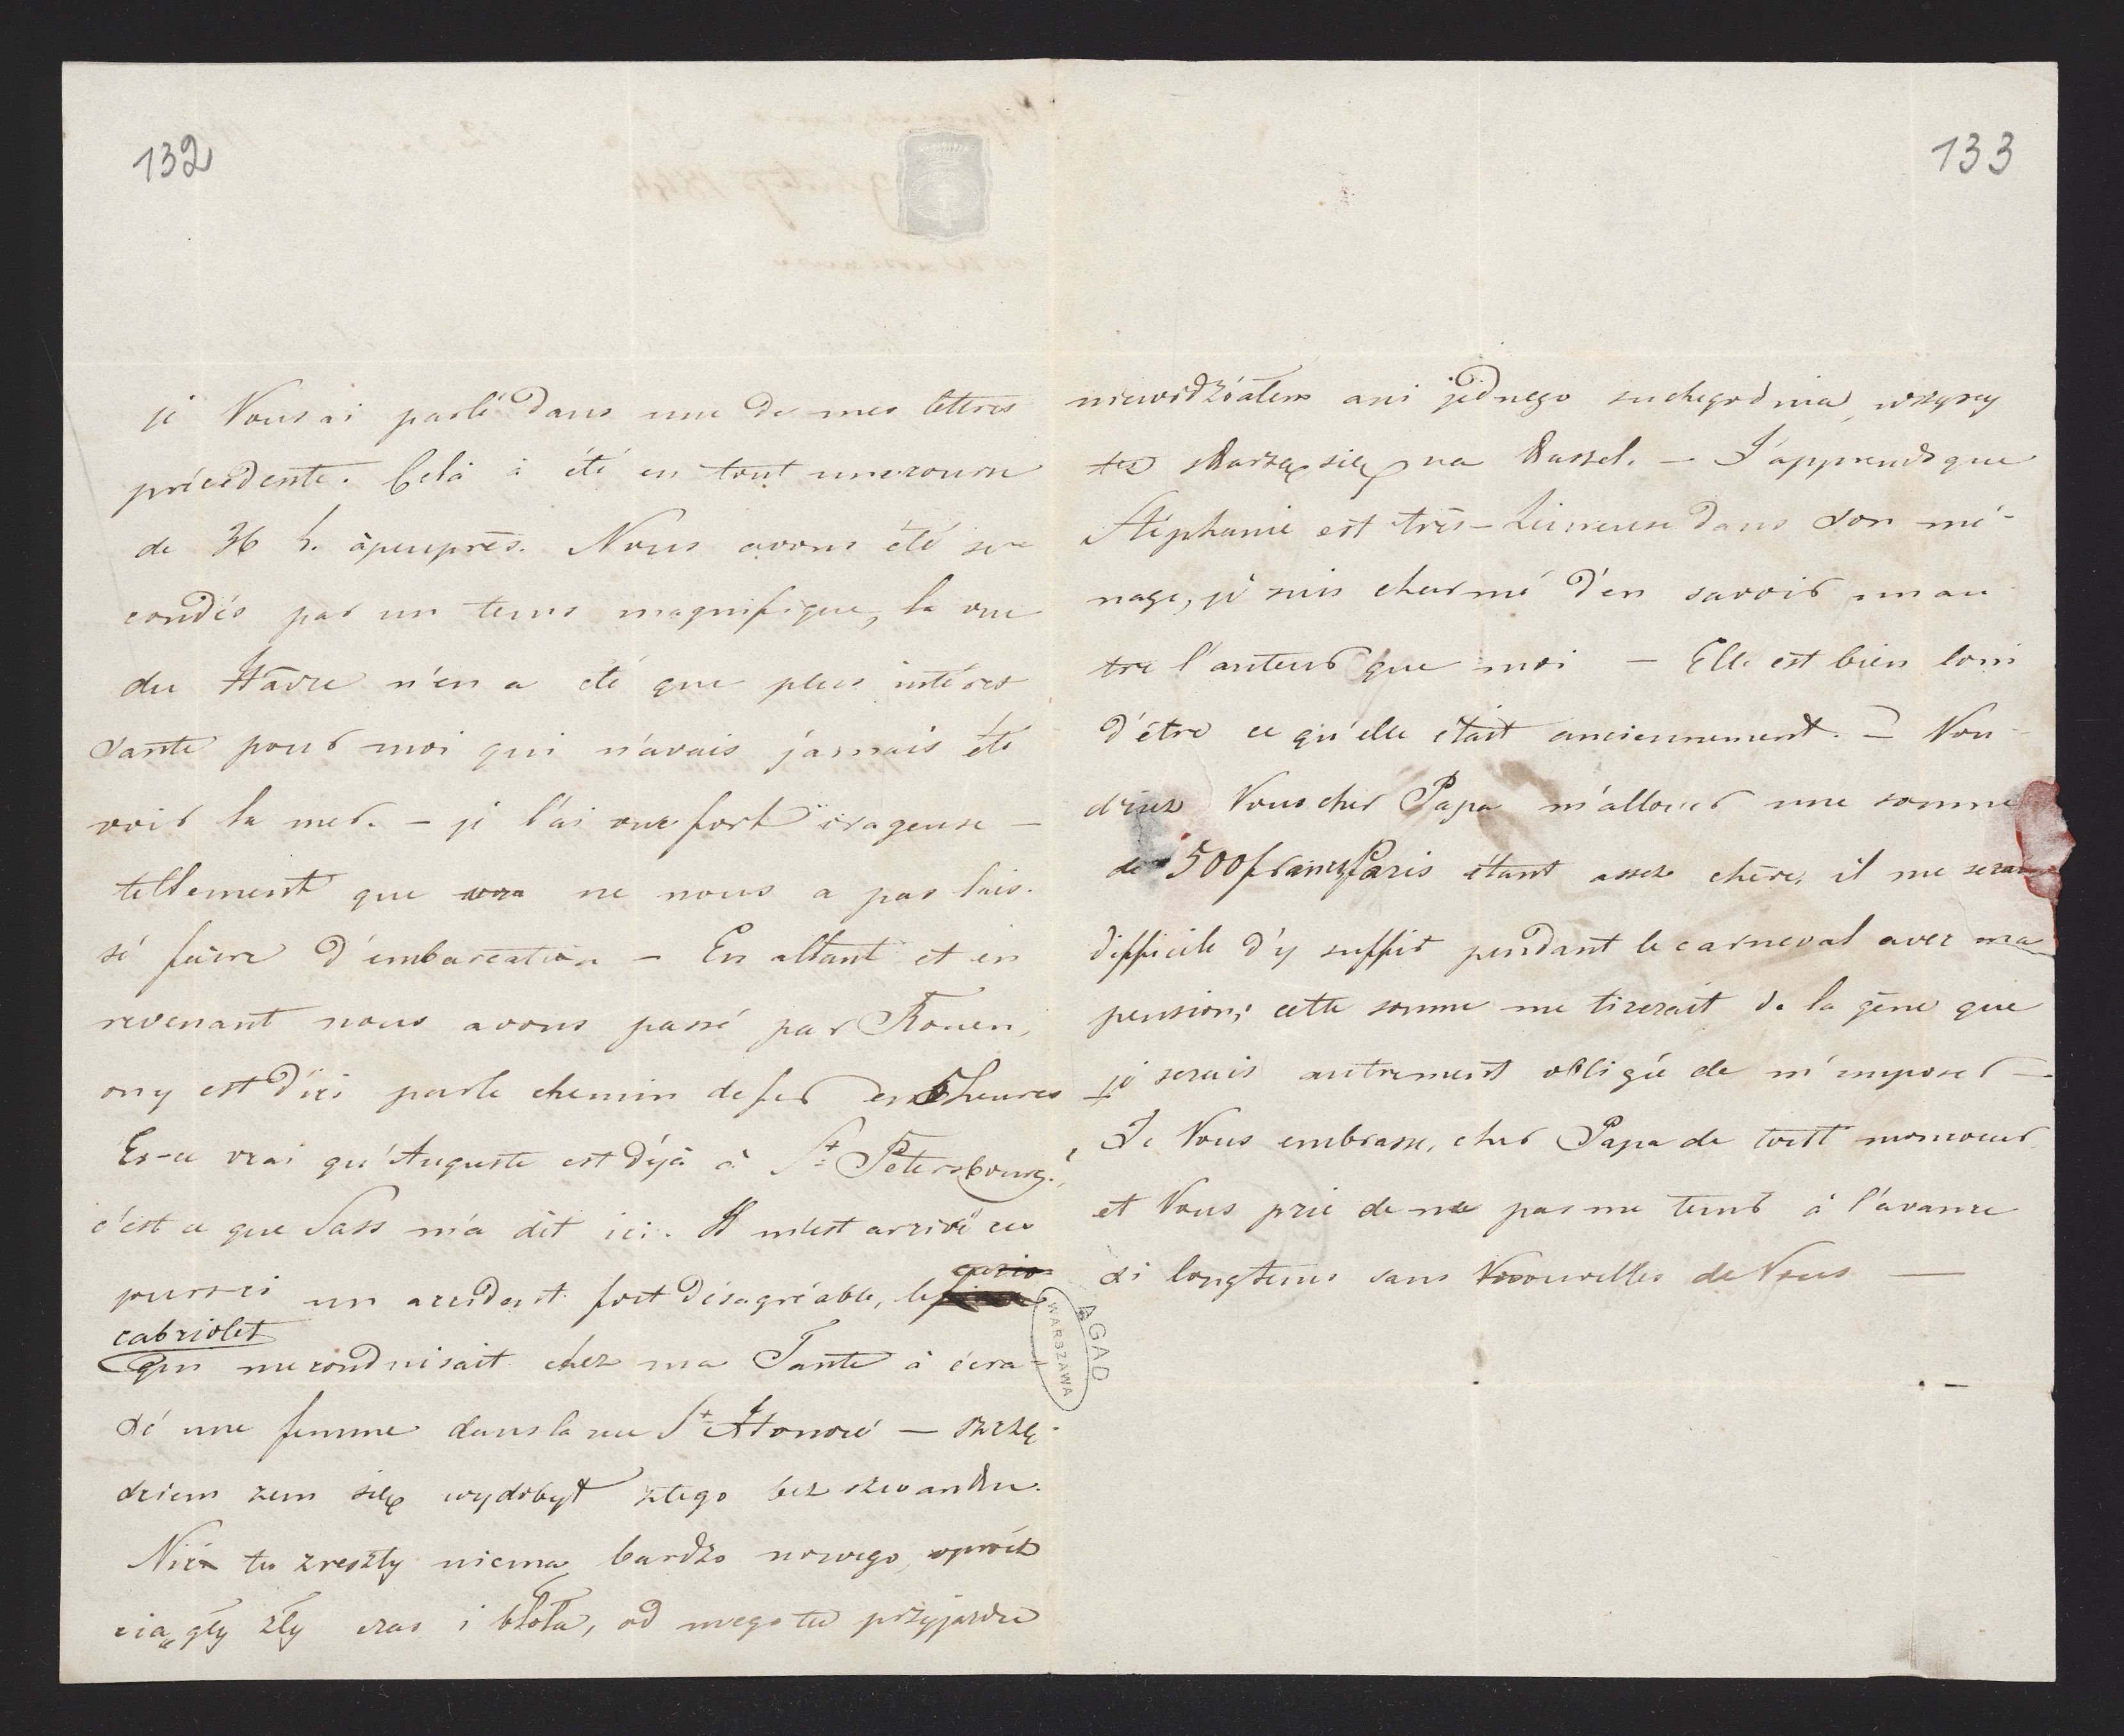 132
je Vous ai parlé dans une de mes lettres
précédente. Celà à été en tout une course
de 36 h. àpeuprès. Nous avons été se
condés par un tems magnifique, la vue
du Hâvre n'en a été que plus intéres
sante pour moi qui n'avais jamais été
voir la mer. – je l'ai vue fort orageuse –
tellement que ne nous a pas lais-
sé faire d'embarcation – En allant et en
revenant nous avons passé par Rouen,
on y est d'ici par le chemin de fer en 5 heures
Es-ce vrai qu'Auguste est déjà à St Petersbourg,
c'est ce que Sass m'a dit ici. Il m'est arrivé ces
jours-ci un accident fort désagréable, le
cabriolet
qui me conduisait chez ma Tante à écra-
sé une femme dans la rue St Honoré – szczę-
dziem zem się wydobył ztego bez szwanku.
Nic tu zreszty niema bardzo nowego, oprócz
ciągły zły czas i błota, od mego tu przyjazdu
AGAD
WARSZAWA
133
niewidziałem ani jednego suchego dnia, wszyscy
tez skarzą się na kaszel. – J'apprends que
Stéphanie est très-heureuse dans son mé-
nage, je suis charmé d'en savoir un au
tre l'auteur que moi – Elle est bien loin
d'être ce qu'elle était anciennement. – Vou-
driez Vous cher Papa m'allouer une somme
de 500 francs Paris étant assez chère, il me sera
difficile d'y suffir pendant le carneval avec ma
pension; cette somme me tirerait de la gêne que
je serais autrement obligé de m'imposer –
Je Vous embrasse, cher Papa de tout moncoeur
et Vous prie de ne pas me tenir à l'avance
si longtems sans Nouvelles de Vous —